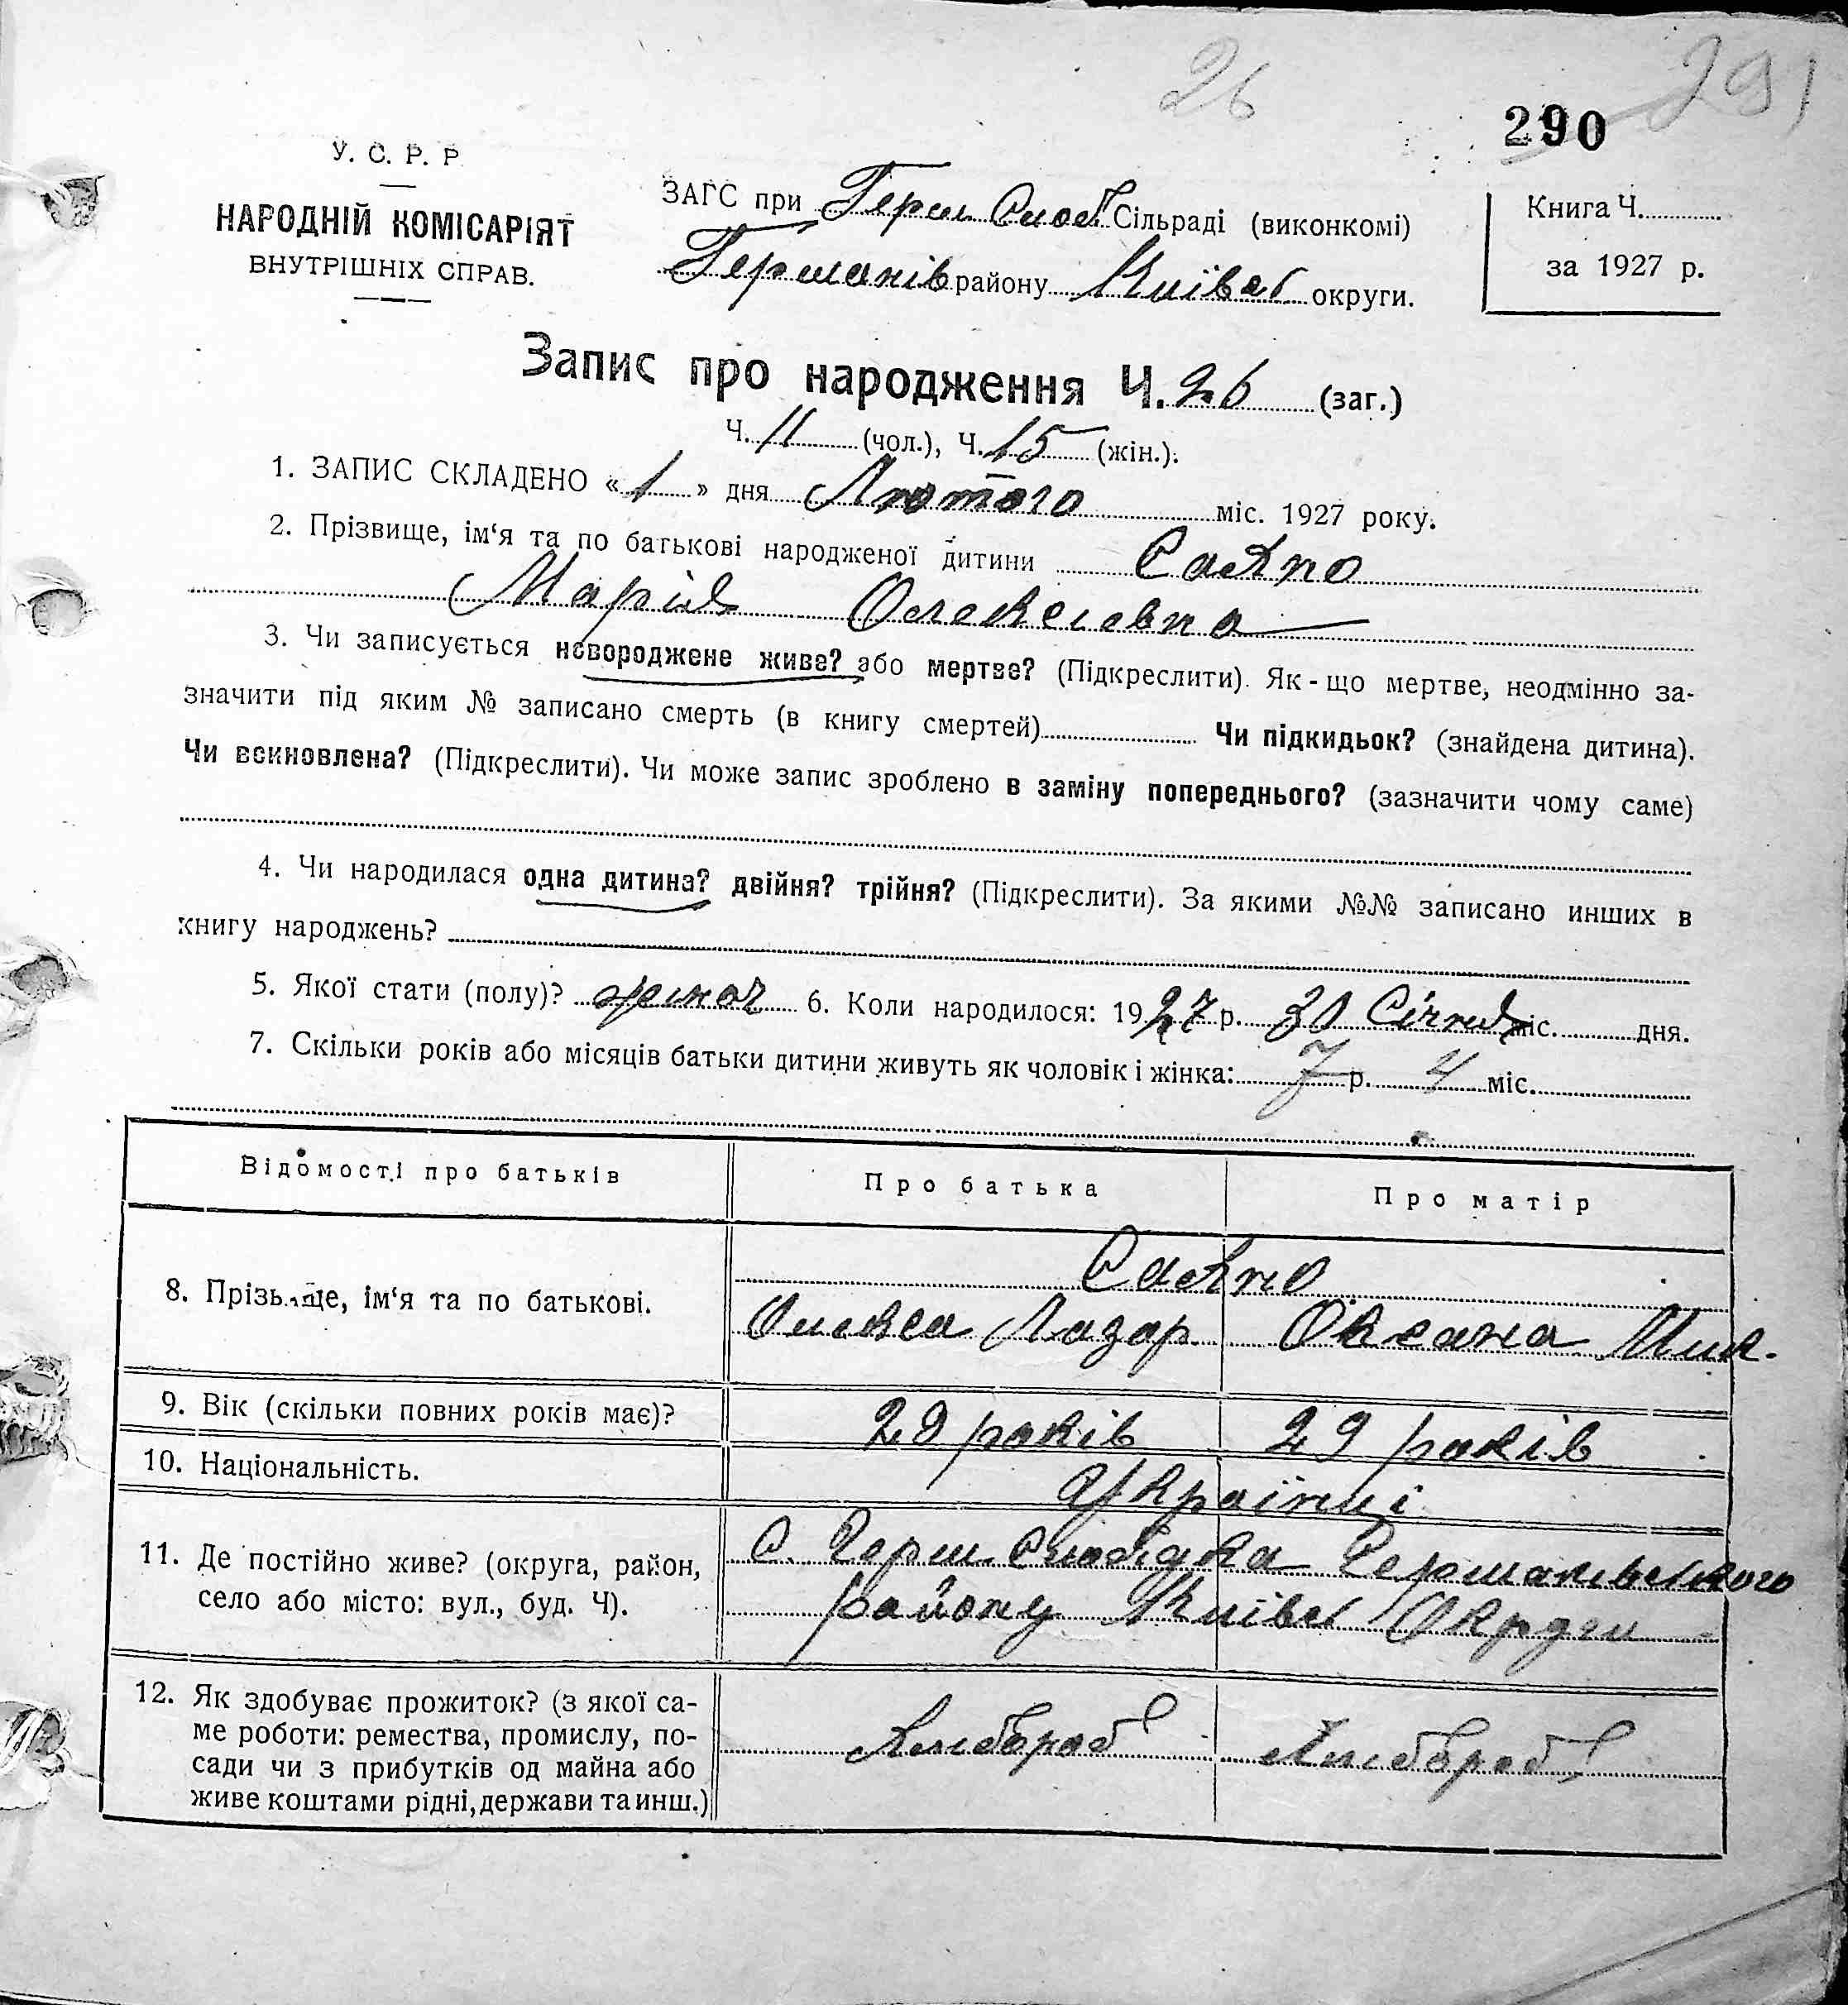 26
291
290
У. С. Р. Р
НАРОДНІЙ КОМІСАРІЯТ
ВНУТРІШНІХ СПРАВ.
ЗАГС при Герм Слоб Сільраді (виконкомі)
Германів району Київс округи.
Книга Ч.
за 1927 р.
Запис про народження Ч. 26 (заг.)
Ч. 11 (чол.), Ч. 15 (жін.).
1. ЗАПИС СКЛАДЕНО «1» дня Лютого міс. 1927 року.
2. Прізвище, ім‘я та по батькові народженої дитини
Марія Олексієвна
3. Чи записується новороджене живе? або мертве? (Підкреслити). Як-що мертве, неодмінно за-
значити під яким № записано смерть (в книгу смертей) Чи підкидьок? (знайдена дитина).
Чи всиновлена? (Підкреслити). Чи може запис зроблено в заміну попереднього? (зазначити чому саме)
4. Чи народилася одна дитина? двійня? трійня? (Підкреслити). За якими №№ записано инших в
книгу народжень?
5. Якої стати (полу)? жіноч 6. Коли народилося: 1927 р. 30 Січня міс. дня.
7. Скільки років або місяців батьки дитини живуть як чоловік і жінка: 7 р. 4 міс.
Відомості про батьків
Про батька
Про матір
8. Прізвище, ім‘я та по батькові.
Олекса Лазар
Оксана Мик.
9. Вік (скільки повних років має)?
29 років
29 років
10. Національність.
Українці
11. Де постійно живе? (округа, район,
село або місто: вул., буд. Ч).
С. Герм. Слобідка Германівського
району Київс Округи
12. Як здобуває прожиток? (з якої са-
ме роботи: ремества, промислу, по-
сади чи з прибутків од майна або
живе коштами рідні, держави та инш.)
Хлібороб
Хлібороб